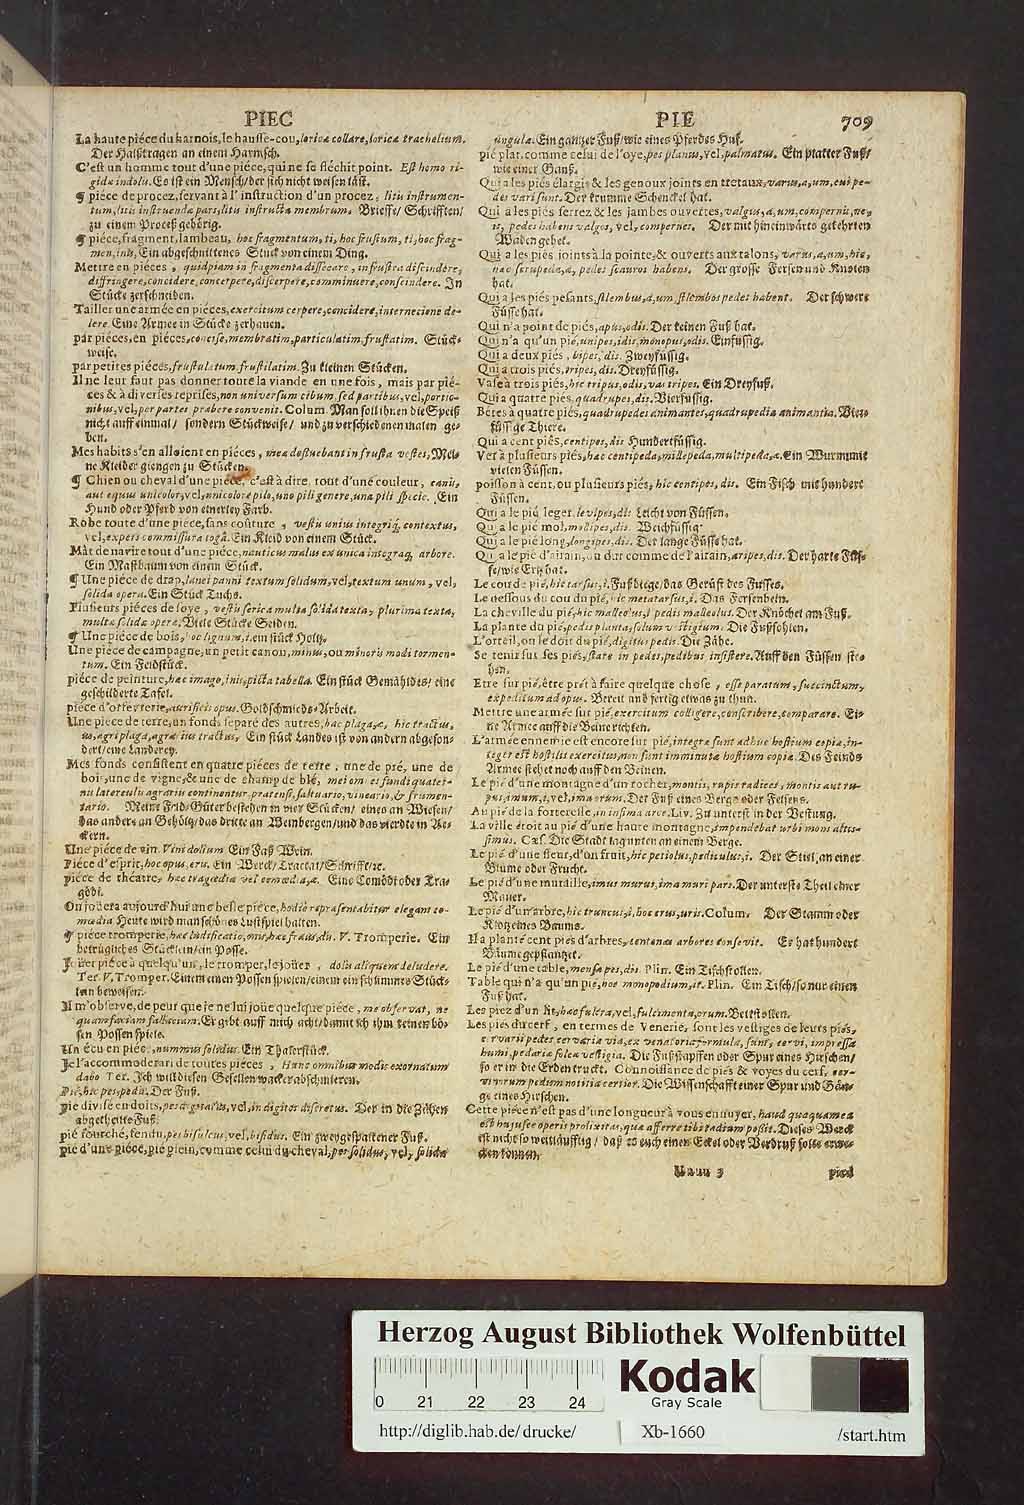 PIEC
PIE
709
La haute piéce du harnois, le hausse-cou, loricæ collare, loricæ trachelium.
Der Halßkragen an einem Harnisch.
C'est un homme tout d'une piéce, qui ne se fléchit point. Est homo ri-
gidæ indolis. Es ist ein Mensch/ der sich nicht weisen läst.
¶ piéce de procez, servant à l'instruction d'un procez, litis instrumen-
tum, litis instruendæ pars, litis instructæ membrum. Brieffe/ Schrifften/
zu einem Proceß gehörig.
¶ piéce, fragment, lambeau, hoc fragmentum, ti, hoc frustum, ti, hoc frag-
men, inis, Ein abgeschnittenes Stück von einem Ding.
Mettre en piéces, quidpiam in fragmenta dissecare, in frustra discindere,
diffringere, concidere, concerpere, discerpere, comminuere, conscindere. In
Stücke zerschneiden.
Tailler une armée en piéces, exercitum cerpere, concidere, internecione de-
lere. Eine Armee in Stücke zerhauen.
par piéces, en piéces, concise, membratim, particulatim, frustatim. Stück-
weise.
par petites piéces, frustulatim, frustilatim. Zu kleinen Stücken.
Il ne leur faut pas donner toute la viande en une fois, mais par pié-
ces & à diverses reprises, non universum cibum, sed partibus, vel, portio-
nibus, vel, per partes præbere convenit. Colum. Man soll ihnen die Speiß
nicht auff einmal/ sondern Stückweise/ und zu verschiedenen malen ge-
ben.
Mes habits s'en alloient en piéces, mea defluebant in frusta vestes, Mei-
ne Kleider giengen zu Stücken.
¶ Chien ou cheval d'une piéce, c'est à dire, tout d'une couleur, canis,
aut equus unicolor, vel, unicolore pilo, uno pili genere, una pili specie. Ein
Hund oder Pferd von einerley Farb.
Robe toute d'une piéce, sans coûture, vestis unius integriq, contextus,
vel, expers commissura toga. Ein Kleid von einem Stück.
Mât de navire tout d'une piéce, nauticus malus ex unica integraq, arbore.
Ein Mastbaum von einem Stück.
¶ Une piéce de drap, lanei panni textum solidum, vel, textum unum, vel,
solida opera. Ein Stück Tuchs.
Plusieurs piéces de soye, vestis serica multa solida texta, plurima texta,
multæ solidæ operæ. Viele Stücke Seiden.
¶ Une piéce de bois, hoc lignum, i. ein stück Holtz.
Une piéce de campagne, un petit canon, minus, ou minoris modi tormen-
tum. Ein Feldstück.
piéce de peinture, hæc imago, inis, picta tabella. Ein stück Gemähldes/ eine
geschilderte Tafel.
piéce d'orfevrerie, aurificis opus. Goldschmieds-Arbeit.
Une piéce de terre, un fonds separé des autres, hæc plaga, æ, hic tractus,
us, agri plaga, agrarius tractus, Ein stück Landes ist von andern abgeson-
dert/ eine Länderey.
Mes fonds consistent en quatre piéces de terre, une de pré, une de
bois, une de vigne, & une de champ de blé, mei omnes fundi quater-
nis latereulis agrariis continentur, pratensi, saltuario, vineario, & frumen-
tario. Meine Feld-Güter bestehen in vier Stücken/ eines an Wiesen/
das andere an Gehöltz/ das dritte an Weinbergen/ und das vierdte in Ae-
ckern.
Une piéce de vin. Vini dolium. Ein Faß Wein.
Piéce d'esprit, hoc opus, eris. Ein Werck/ Tractat/ Schrifft/ ꝛc.
piéce de théatre, hæc tragœdia vel comœdia, æ. Eine Comödi oder Tra-
gödi.
On joüera aujourd'hui une belle piéce, hodie repræsentabitur elegans co-
mœdia. Heute wird man schönes Lustspiel halten.
¶ piéce tromperie, hæc ludificatio, onis, hæc fraus, dis. V. Tromperie. Ein
betrügliches Stücklein/ ein Posse.
Joüer piéce à quelqu'un, le tromper, le joüer, dolis aliquem deludere.
Ter. V. Tromper. Einem einen Possen spielen/ einem ein schlimmes Stück-
lein beweisen.
Il m'observe, de peur que je ne lui joüe quelque piéce, me observat, ne
quam faciam fallaciam. Er gibt auff mich acht/ damit ich ihm keinen bö-
sen Possen spiele.
Un écu en piéce, nummus solidus. Ein Thalerstück.
Je l'accommoderai de toutes piéces, Hunc omnibus modis exornatum
dabo Ter. Ich will diesen Gesellen wacker abschmieren.
Pié, hic pes, pedis. Der Fuß.
pié divisé en doits, pes digitatus, vel, in digitos discretus. Der in die Zähen
abgetheilte Fuß.
pié fourché, fendu, pes bisulcus, vel, bifidus. Ein zweygespaltener Fuß.
pié d'une piéce, pié plein, comme celui du cheval, pes solidus, vel, solida
ungula. Ein gantzer Fuß/ wie eines Pferdes Huf.
pié plat, comme celui de l'oye, pes planus, vel, palmatus. Ein platter Fuß/
wie einer Gans.
Qui a les piés élargis & les genoux joints en treteaux, varus, a, um, cui pe-
des vari sunt. Der krumme Schenckel hat.
Qui a les piés serrez & les jambes ouvertes, valgus, a, um, compernis, ne,
is, pedes habens valgos, vel, compernes. Der mit hineinwärts gekehrten
Waden gehet.
Qui a les piés joints à la pointe, & ouverts aux talons, varus, a, um, hic,
hæc scrupeda, æ, pedes scauros habens. Der grosse Fersen und Knoten
hat.
Qui a les piés pesants, stlembus, a, um, stlembos pedes habent. Der schwere
Füsse hat.
Qui n'a point de piés, apus, odis. Der keinen Fuß hat.
Qui n'a qu'un pié, unipes, idis, monopus, odis. Einfüssig.
Qui a deux piés, bipes, dis. Zweyfüssig.
Qui a trois piés, tripes, dis. Dreyfüssig.
Vase à trois piés, hic tripus, odis, vas tripes. Ein Dreyfuß.
Qui a quatre piés, quadrupes, dis. Vierfüssig.
Bétes à quatre piés, quadrupedes animantes, quadrupedia animantia. Vier-
füssige Thiere.
Qui a cent piés, centipes, dis Hundertfüssig.
Ver à plusieurs piés, hæc centipeda, millepeda, multipeda, æ. Ein Wurm mit
vielen Füssen.
poisson à cent, ou plusieurs piés, hic centipes, dis. Ein Fisch mit hundert
Füssen.
Qui a le pié leger, levipes, dis Leicht von Füssen.
Qui a le pié mol, mollipes, dis. Weichfüssig.
Qui a le pié long, longipes, dis. Der lange Füsse hat.
Qui a le pié d'airain, ou dur comme de l'airain, æripes, dis. Der harte Füs-
se/ wie Ertz hat.
Le cou de pié, hic tarsus, i. Fußbiege/ das Gerüst des Fusses.
Le dessous du cou du pié, hic metatarsus, i. Das Fersenbein.
La cheville du pié, hic malleolus, i pedis malleolus. Der Knöchel am Fuß.
La plante du pié, pedis planta, solum vestigium. Die Fußsohlen.
L'orteil, ou le doit du pié, digitus pedis. Die Zähe.
Se tenir sur ses piés, stare in pedes, pedibus insistere. Auff den Füssen ste-
hen.
Etre sur pié, être prét à faire quelque chose, esse paratum, succinctum,
expeditum ad opus. Bereit und fertig etwas zu thun.
Mettre une armée sur pié, exercitum colligere, conscribere, comparare. Ei-
ne Armee auff die Beine richten.
L'armée ennemie est encore sur pié, integræ sunt adhuc hostium copiæ, in-
teger est hostilis exercitus, non sunt imminutæ hostium copiæ. Des Feinds
Armee stehet noch auff den Beinen.
Le pié d'une montagne d'un rocher, montis, rupis radices, montis aut ru-
pis, imum, i, vel, ima orum. Der Fuß eines Bergs oder Felsens.
Au pié de la forteresse, in infima arce. Liv. Zu unterst in der Vestung.
La ville étoit au pié d'une haute montagne, impendebat urbi mons altis-
simus. Cæs. Die Stadt lag unten an einem Berge.
Le pié d'une fleur, d'un fruit, hic petiolus, pediculus, i. Der Stiel an einer
Blume oder Frucht.
Le pié d'une muraille, imus murus, ima muri pars. Der unterste Theil einer
Mauer.
Le pié d'un arbre, hic truncus, i, hoc crus, uris. Colum. Der Stamm oder
Klotz eines Baums.
Il a planté cent piés d'arbres, centenas arbores consevit. Er hat hundert
Bäume gepflantzet.
Le pié d'une table, mensæ pes, dis. Plin. Ein Tischstollen.
Table qui n'a qu'un pié, hoc monopodium, ii. Plin. Ein Tisch/ so nur einen
Fuß hat.
Les piez d'un lit, hæc fulcra, vel, fulcimenta, orum. Bettstollen.
Les piés du cerf, en termes de Venerie, sont les vestiges de leurs piés,
cervarii pedes cervariæ via, ex venatoria formula, sunt, cervi, impressæ
humi, pedariæ soleæ vestigia. Die Fußstapffen oder Spur eines Hirschen/
so er in die Erden truckt. Connoissance de piés & voyes du cerf, cer-
vinorum pedum notitia certior. Die Wissenschafft einer Spur und Gän-
ge eines Hirschen.
Cette piéce n'est pas d'une longueur à vous ennuyer, haud quaquam ea
est hujusce operis prolixitas, quæ afferre tibi tædium possit. Dieses Werck
ist nicht so weitläufftig/ daß es euch einen Eckel oder Verdruß solte erwe-
cken können.
Uuuu 3
pied
Herzog August Bibliothek Wolfenbüttel
0 21 22 23 24
Kodak
Gray Scale
http://diglib.hab.de/drucke/
Xb-1660
/start.htm